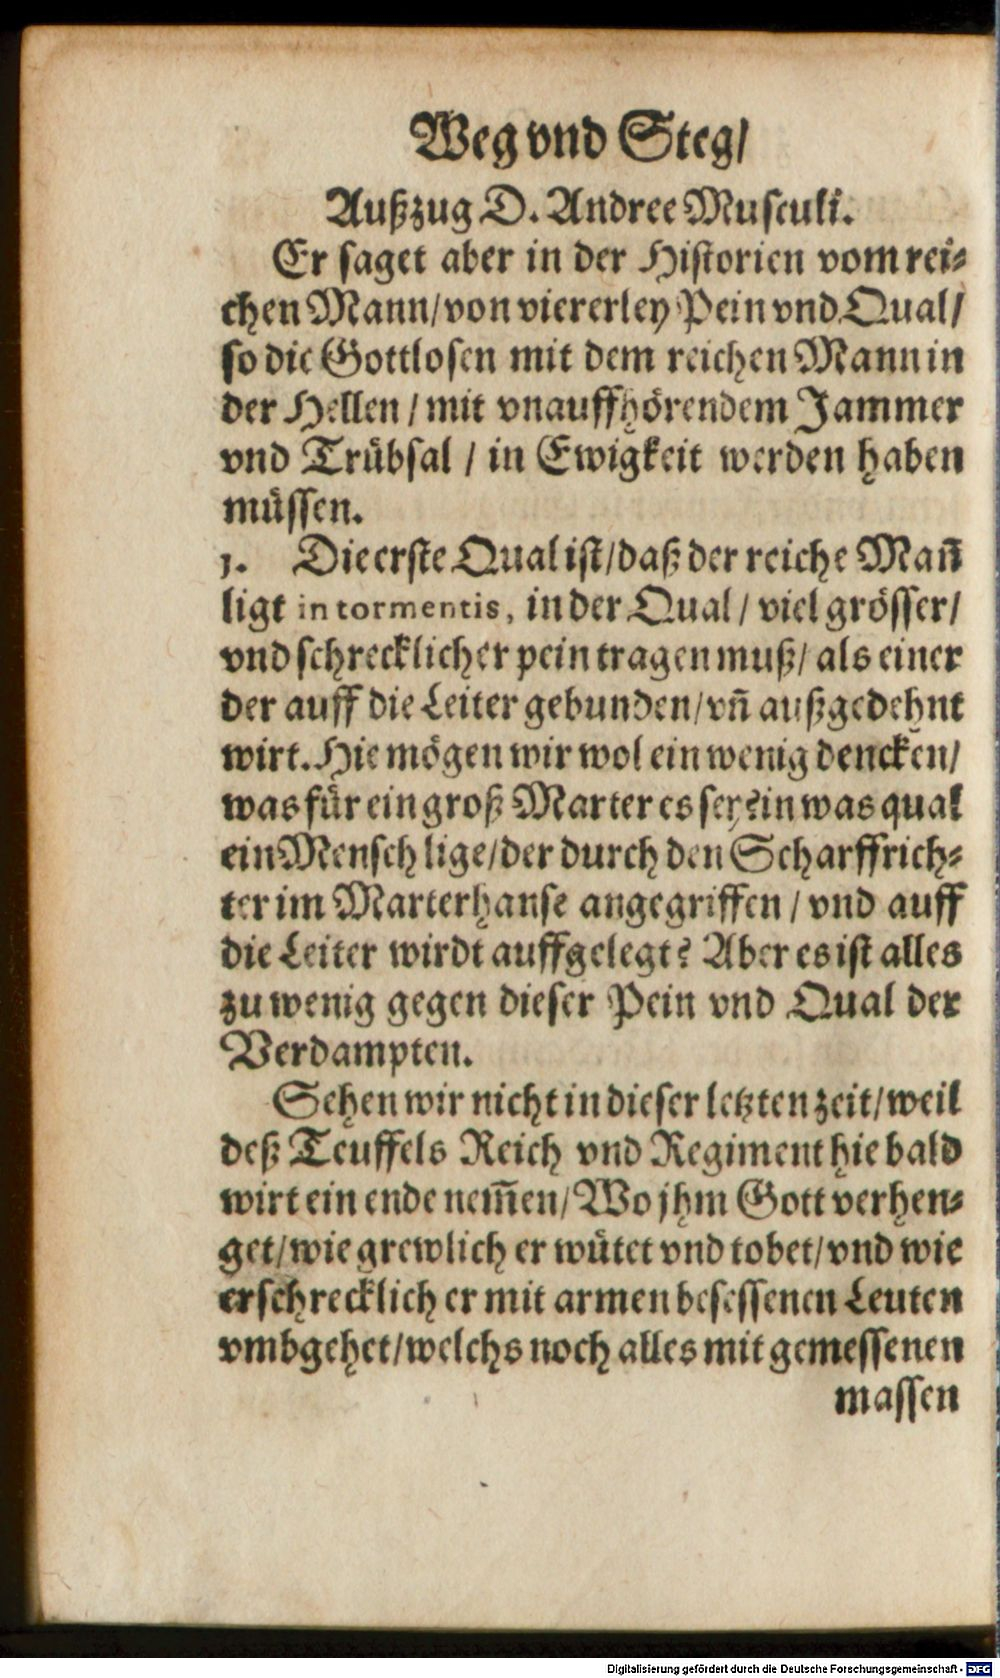 Weg vnd Steg/
Außzug D. Andree Musculi.
Er saget aber in der Historien vom rei-
chen Mann/von viererley Pein vnd Qual/
so die Gottlosen mit dem reichen Mann in
der Hellen / mit vnauffhörendem Jammer
vnd Trübsal / in Ewigkeit werden haben
müssen.
1. Die erste Qual ist/daß der reiche Mañ
ligt in tormentis, in der Qual / viel grösser/
vnd schrecklicher pein tragen muß/ als einer
der auff die Leiter gebunden/vñ außgedehnt
wirt. Hie mögen wir wol ein wenig dencken/
was für ein groß Marter es sey? in was qual
ein Mensch lige/der durch den Scharffrich-
ter im Marterhanse angegriffen / vnd auff
die Leiter wirdt auffgelegt? Aber es ist alles
zu wenig gegen dieser Pein vnd Qual der
Verdampten.
Sehen wir nicht in dieser letzten zeit/weil
deß Teuffels Reich vnd Regiment hie bald
wirt ein ende nem̃en/Wo jhm Gott verhen-
get/wie grewlich er wütet vnd tobet/vnd wie
erschrecklich er mit armen besessenen Leuten
vmbgehet/welchs noch alles mit gemessenen
massen
Digitalisierung gefördert durch die Deutsche Forschungsgemeinschaft - DFG